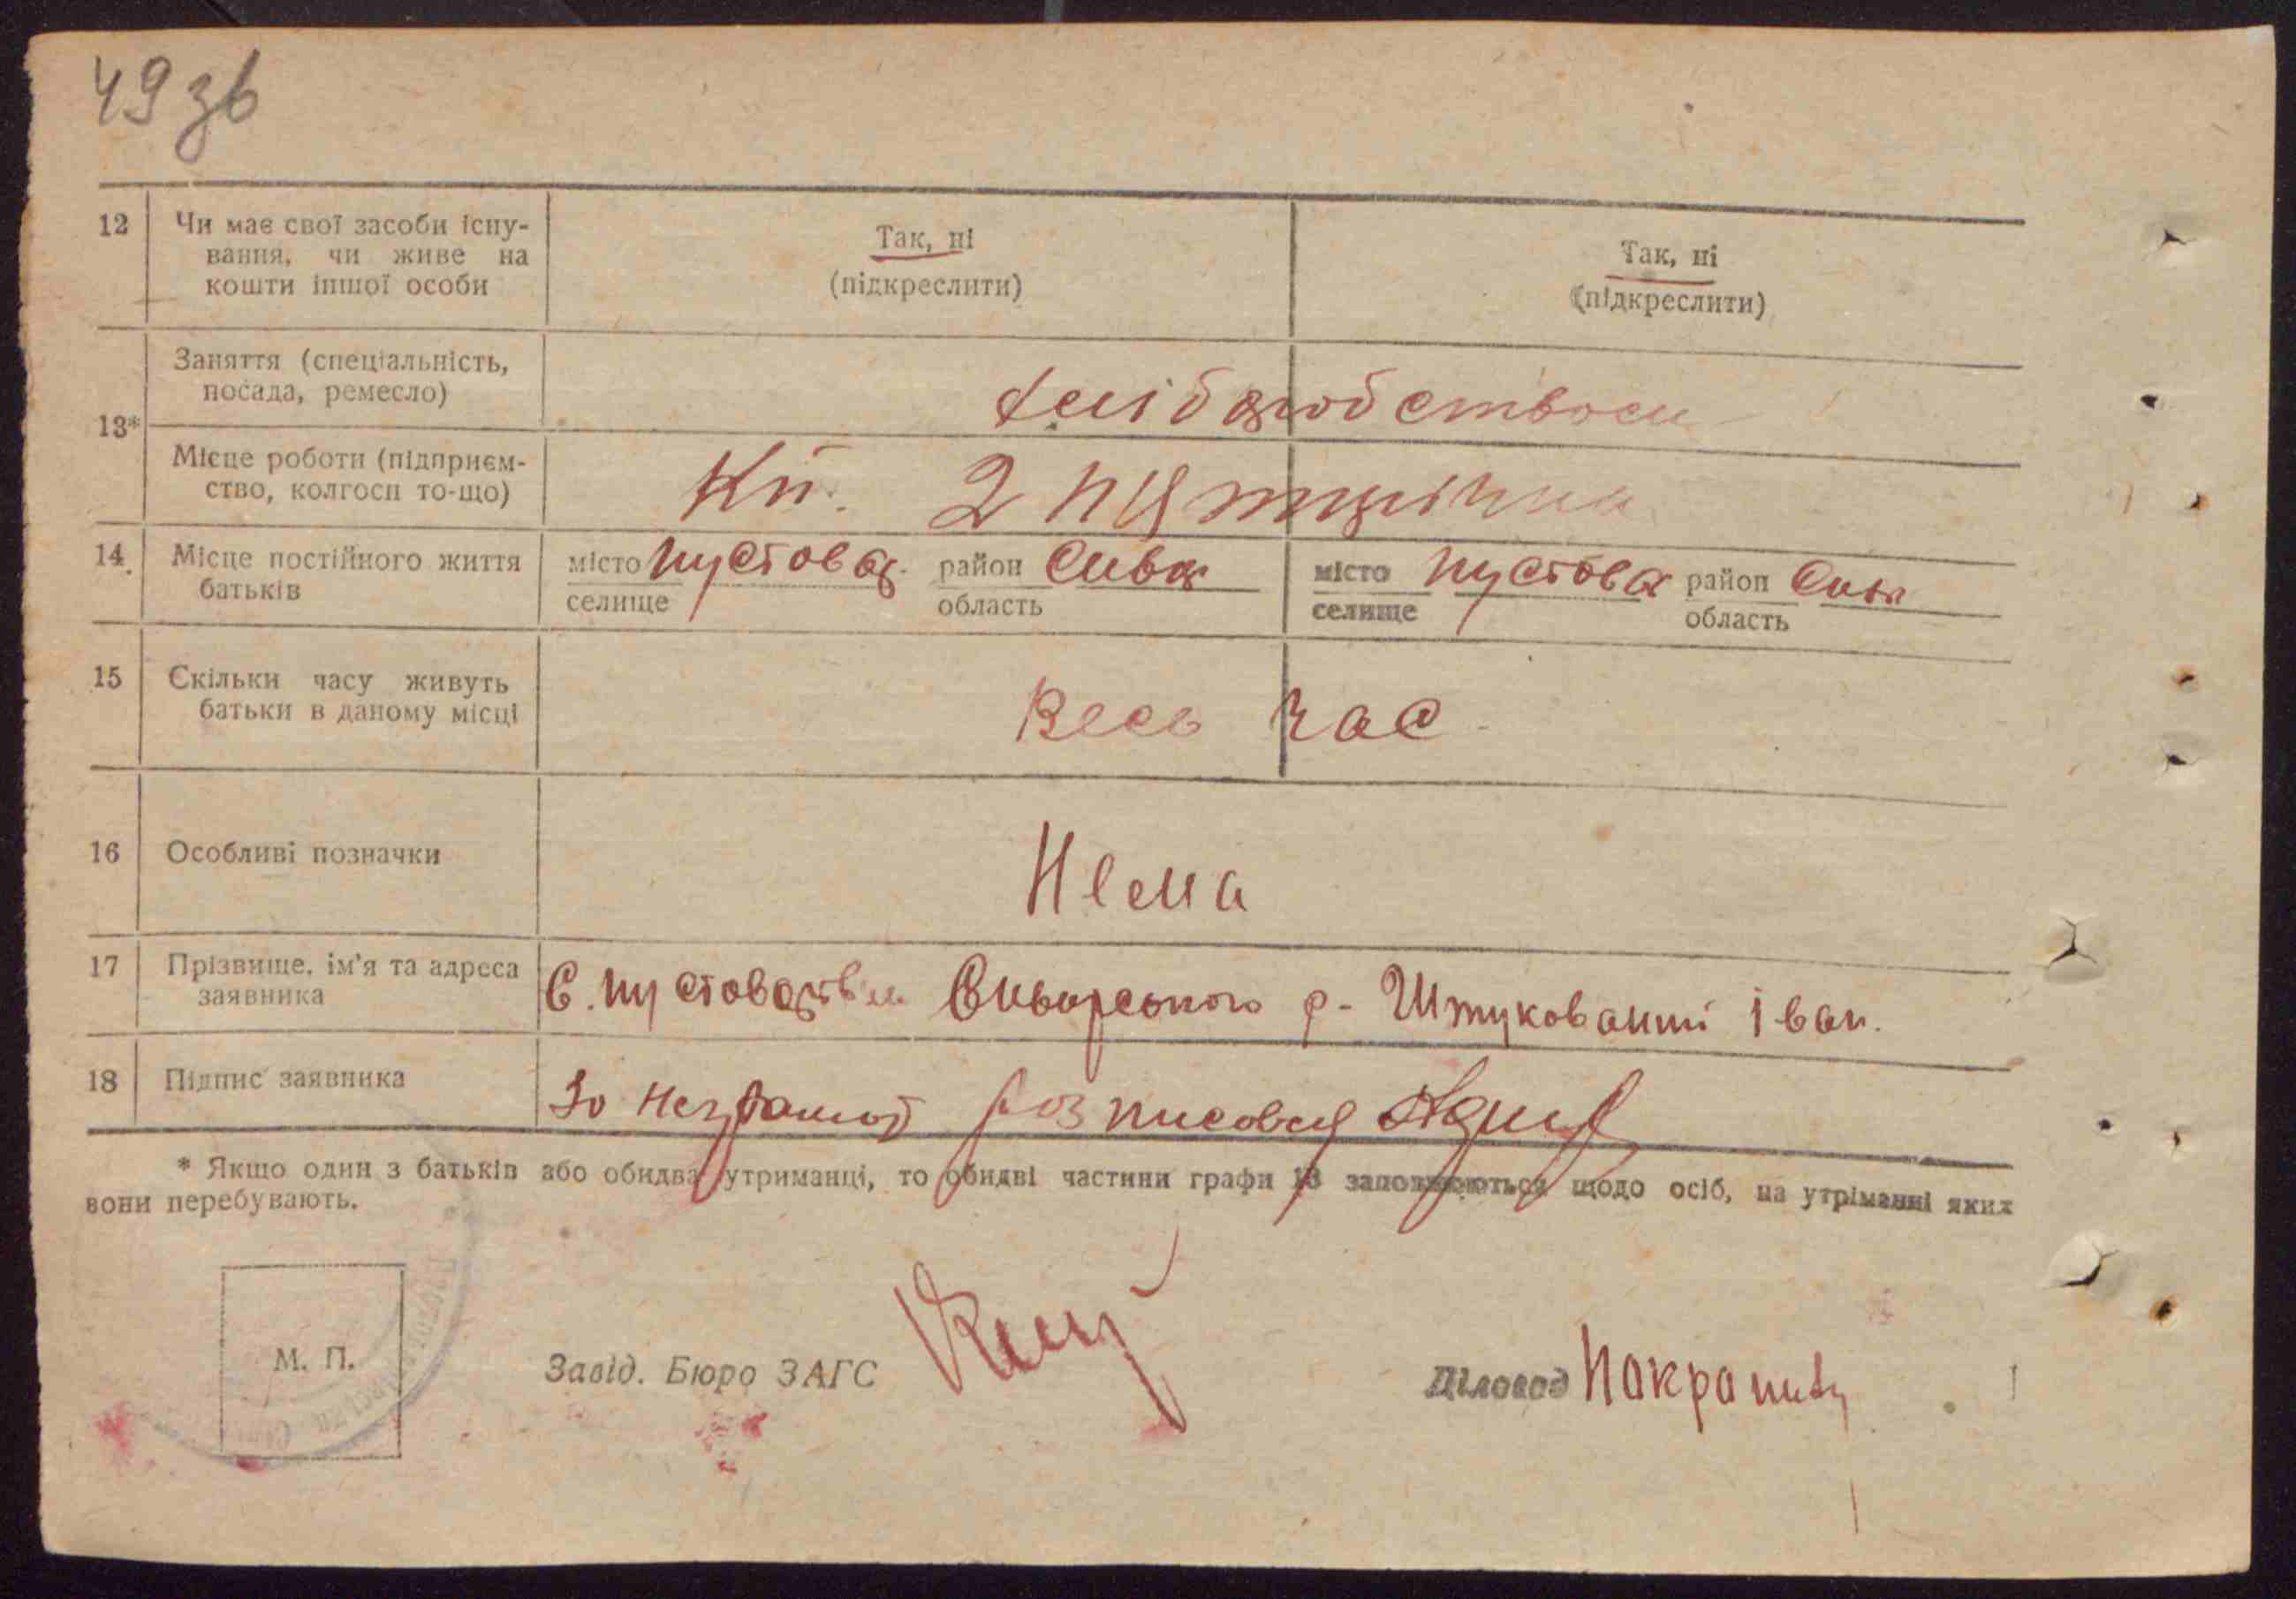 49 зв
12 Чи має свої засоби існу-
вання, чи живе на
кошти іншої особи
Так, ні
(підкреслити)
Так, ні
(підкреслити)
13*
Заняття (спеціальність,
посада, ремесло)
Місце роботи (підприєм-
ство, колгосп то-що)
Кп. 2 пятирічка
14. Місце постійного життя
батьків
місто Пустова район Сква
селище область
місто Пустова район Скв
селище область
15 Скільки часу живуть
батьки в даному місці
Весь час
16 Особливі позначки
Нема
17 Прізвище, ім'я та адреса
заявника
С. Сквирського р- Штукований Іван.
18 Підпис заявника
За розписовся
* Якщо один з батьків або обидва утриманці, то обидві частини графи 13 заповнюються щодо осіб, на утріманні яких
вони перебувають.
М. П.
Завід. Бюро ЗАГС
Діловод